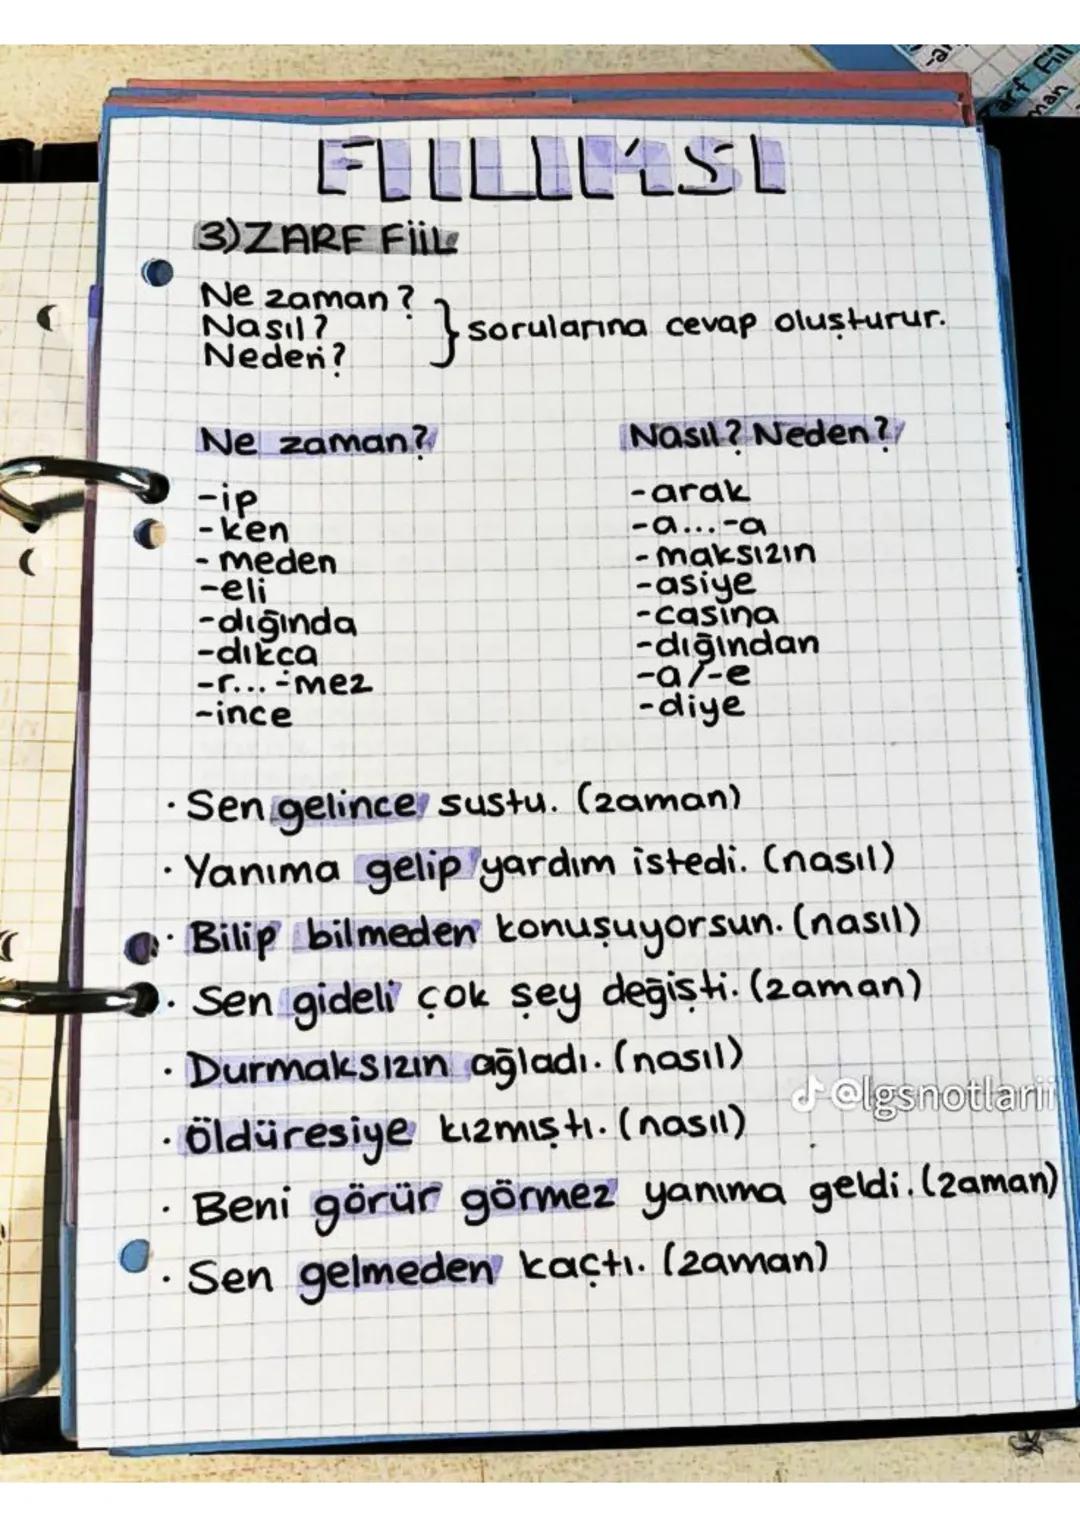 FİİLİMSİ
3)ZARF FİİL
Ne zaman?
Nasıl?
Neden?
sorularına cevap oluşturur.
Ne zaman?
-ip
-ken
-meden
-eli
-dığında
-dıkça
-r...-mez
-ince
Nasıl? Neden?
-arak
-a...-a
-maksızın
-asiye
-casına
-dığından
-a/-e
-diye
· Sen gelince sustu. (zaman)
· Yanıma gelip yardım istedi. (nasıl)
· Bilip bilmeden konuşuyorsun. (nasıl)
· Sen gideli çok şey değişti. (zaman)
· Durmaksızın ağladı. (nasıl)
@lgsnotlarii
· Öldüresiye kızmıştı. (nasıl)
· Beni görür görmez yanıma geldi. (zaman)
· Sen gelmeden kaçtı. (zaman)